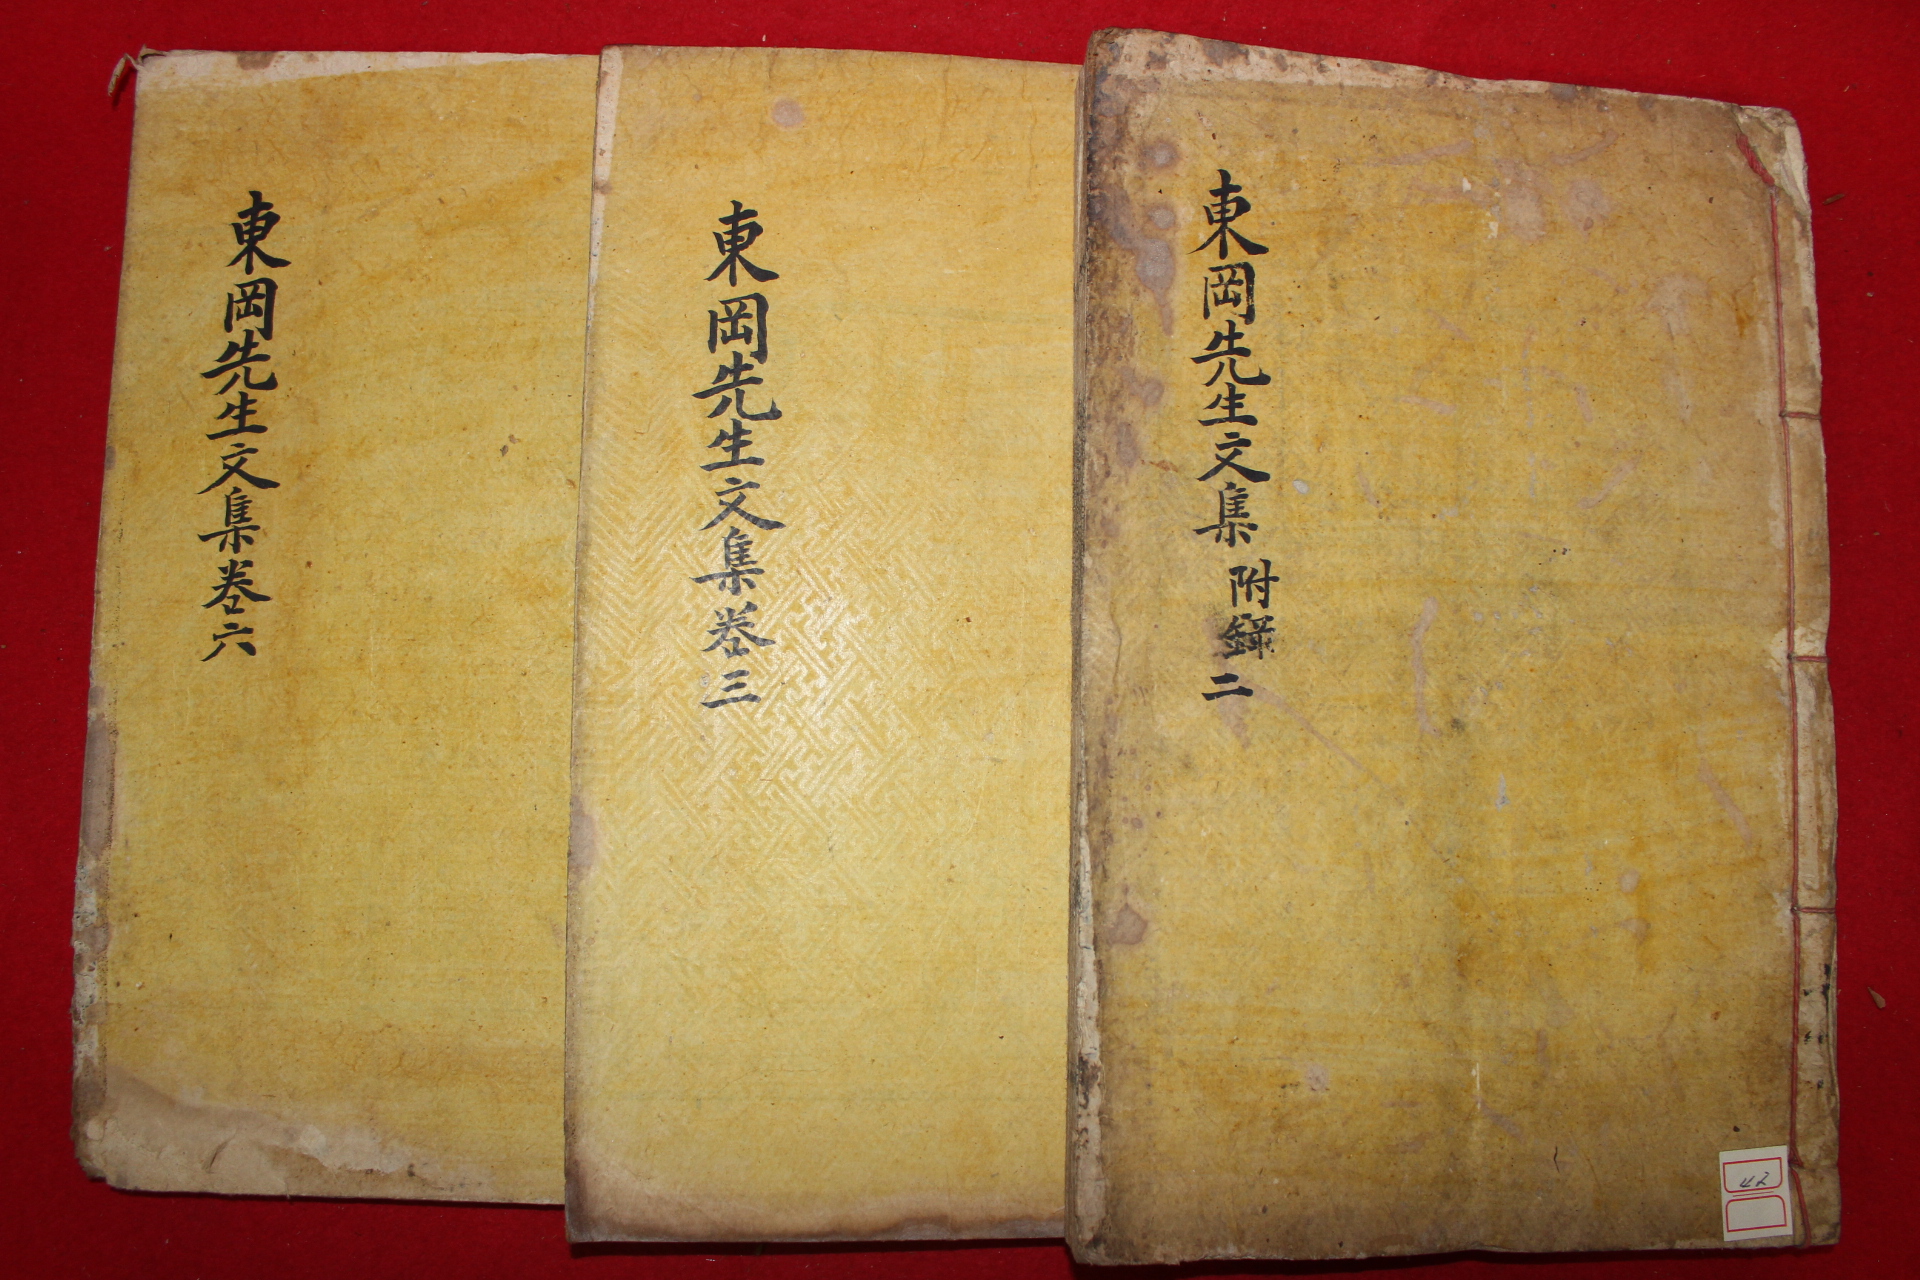 東岡先生文集 附錄 二
東岡先生文集卷三
東岡先生文集卷六
42